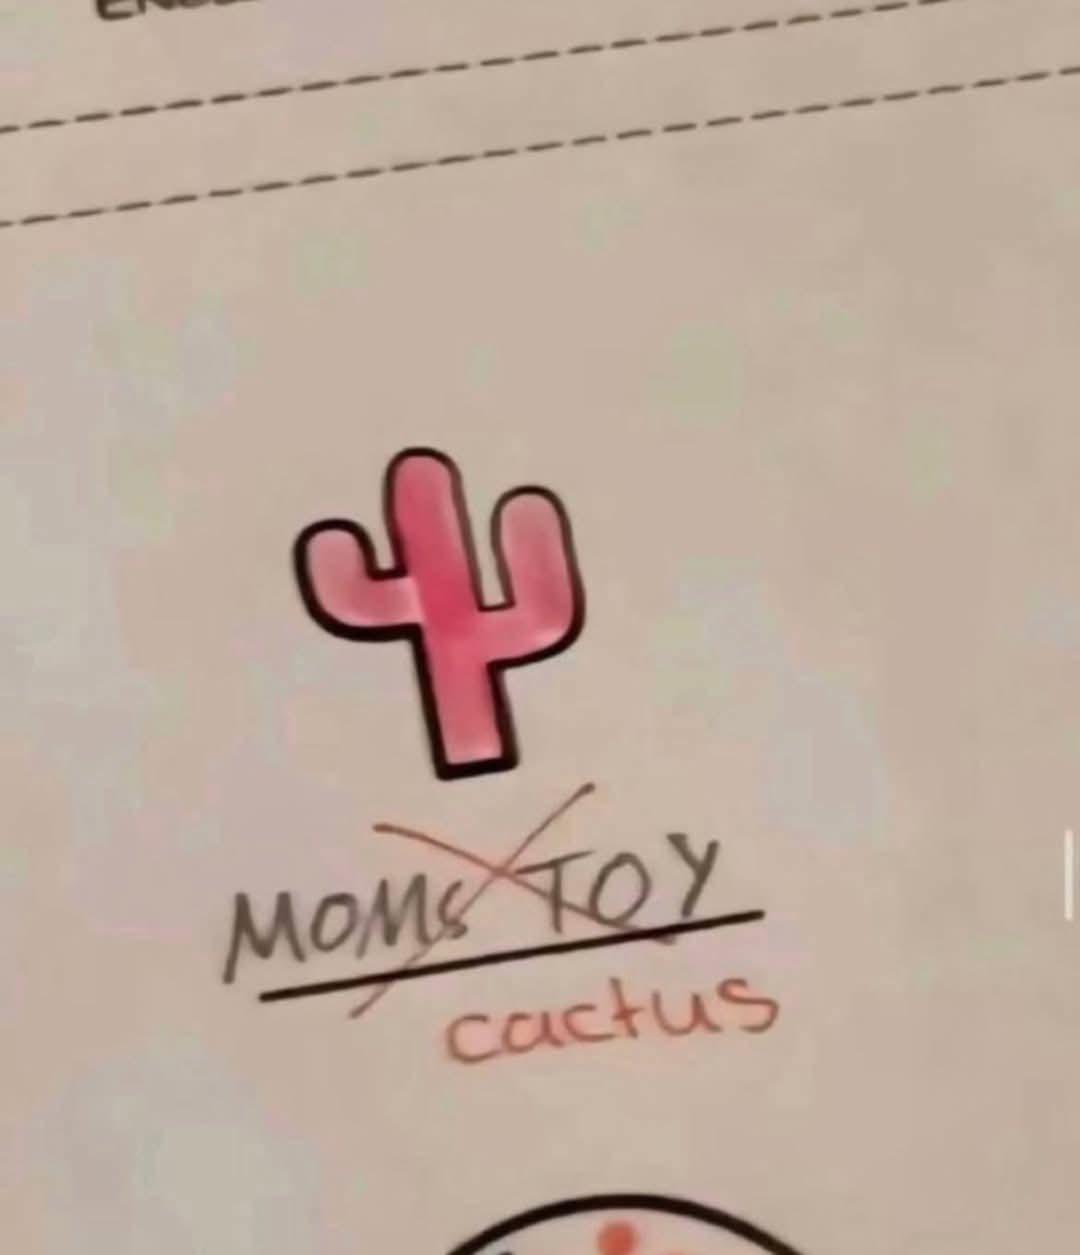 MOMS TOY
cactus